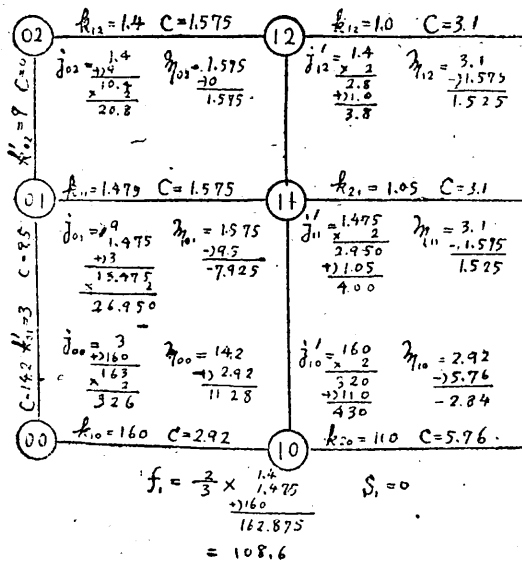 02 k₁₂=1.4 C=1.575 12 k₁₂=1.0 C=3.1
j₀₂= 1.4
+)9
10.4
× 2
20.8
η₀₂= 1.575
-)0
1.575
j'₁₂= 1.4
× 2
2.8
+)1.0
3.8
η₁₂= 3.1
-)1.575
1.525
k'₀₂=9 C=0
01 k₁₁=1.475 C=1.575 11 k₂₁=1.05 C=3.1
j₀₁= 9
1.475
+)3
13.475
× 2
26.950
η₀₁= 1.575
-)9.5
-7.925
j'₁₁= 1.475
× 2
2.950
+)1.05
4.00
η₁₁= 3.1
-)1.575
1.525
C=14.2 k'₀₁=3 C=9.5
j₀₀= 3
+)160
163
× 2
326
η₀₀= 14.2
-)2.92
11.28
j'₁₀= 160
× 2
320
+)110
430
η₁₀= 2.92
-)5.76
-2.84
00 k₁₀=160 C=2.92 10 k₂₀=110 C=5.76
f₁ = 2/3 × 1.4
1.475
+)160
162.875
S₁=0
= 108.6